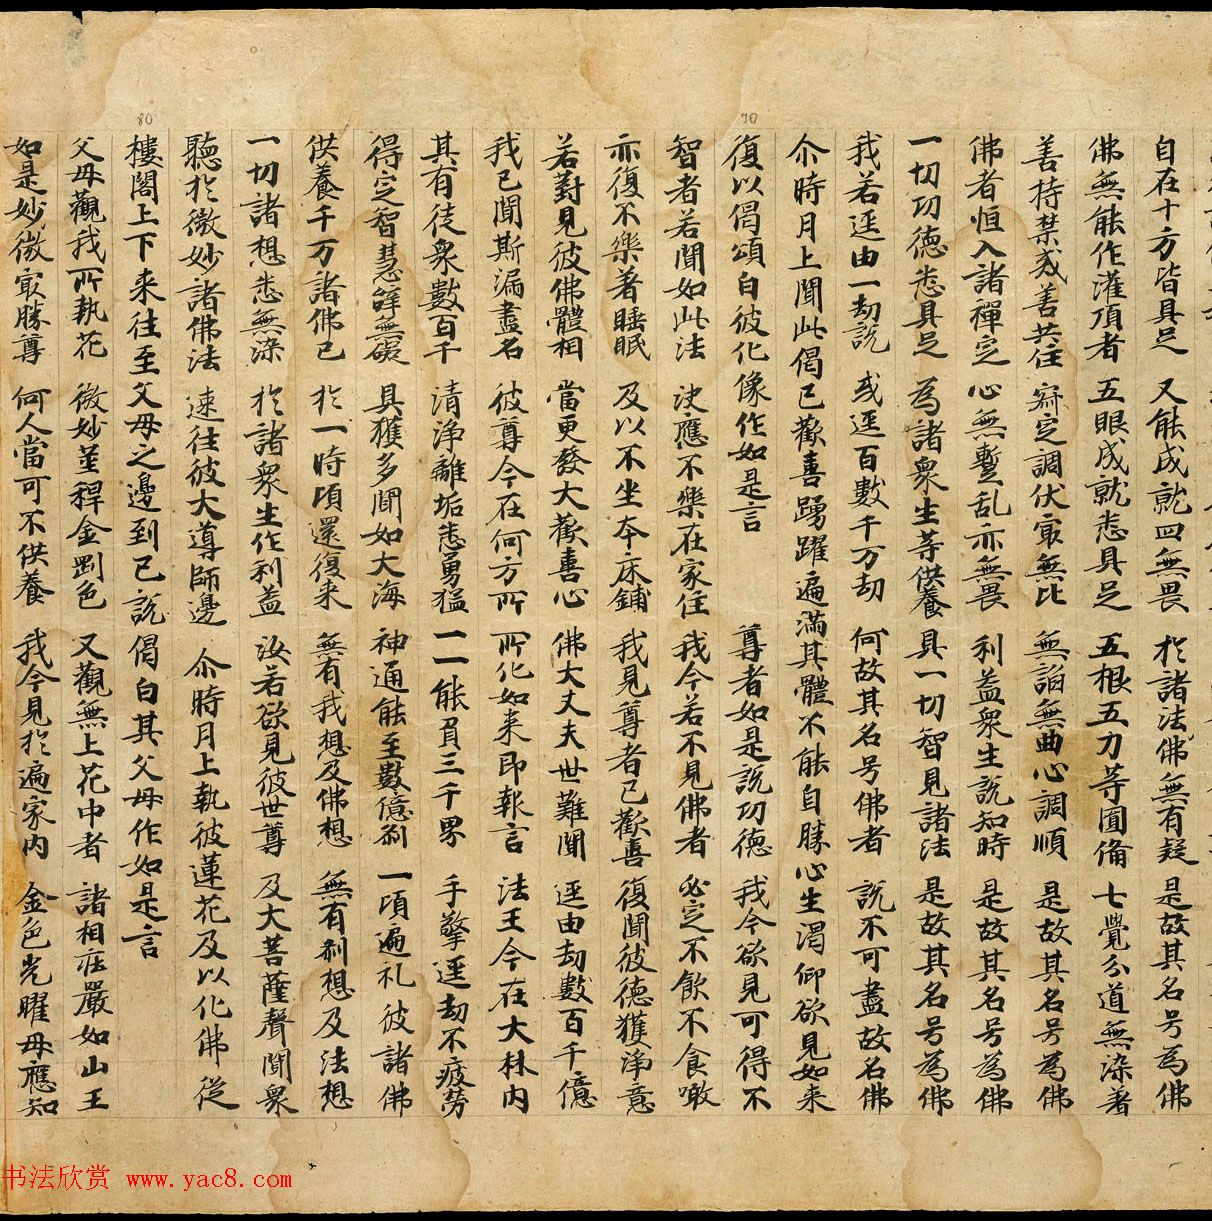 自在十方皆具足 又能成就四無畏 於諸法佛無有疑 是故其名号為佛
佛無能作灌頂者 五眼成就悉具足 五根五力等圓備 七覺分道無染著
善持禁戒善共住 寂定調伏宷無比 無諂無曲心調順 是故其名号為佛
佛者恒入諸禪定 心無蹔乱亦無畏 利益衆生說知時 是故其名号為佛
一切功德悉具足 為諸衆生等供養 具一切智見諸法 是故其名号為佛
我若逕由一劫說 或逕百數千万劫 何故其名号佛者 說不可盡故名佛
尒時月上聞此偈已歡喜踴躍遍滿其體不能自勝心生渴仰欲見如来
復以偈頌白彼化像作如是言 尊者如是說功德 我今欲見可得不
智者若聞如此法 決應不樂在家住 我今若不見佛者 必定不飲不食噉
亦復不樂著睡眠 及以不坐本床鋪 我見尊者已歡喜 復聞彼德獲淨意
若對見彼佛體相 當更發大歡喜心 佛大丈夫世難聞 逕由劫數百千億
我已聞斯漏盡名 彼尊今在何方所 所化如来即報言 法王今在大林内
其有徒衆數百千 清淨離垢悉勇猛 一一能負三千界 手擎逕劫不疲勞
得定智慧辯無礙 具獲多聞如大海 神通能至數億刹 一頃遍礼彼諸佛
供養千万諸佛已 於一時頃還復来 無有我想及佛想 無有刹想及法想
一切諸想悉無染 於諸衆生作利益 汝若欲見彼世尊 及大菩薩聲聞衆
聽於微妙諸佛法 速往彼大導師邊 尒時月上執彼蓮花及以化佛從
樓閣上下来往至父母之邊到已說偈白其父母作如是言
父母觀我所執花 微妙莖稈金剛色 又觀無上花中者 諸相莊嚴如山王
如是妙微宷勝尊 何人當可不供養 我今見於遍家内 金色光曜母應知
80
70
书法欣赏 www.yac8.com